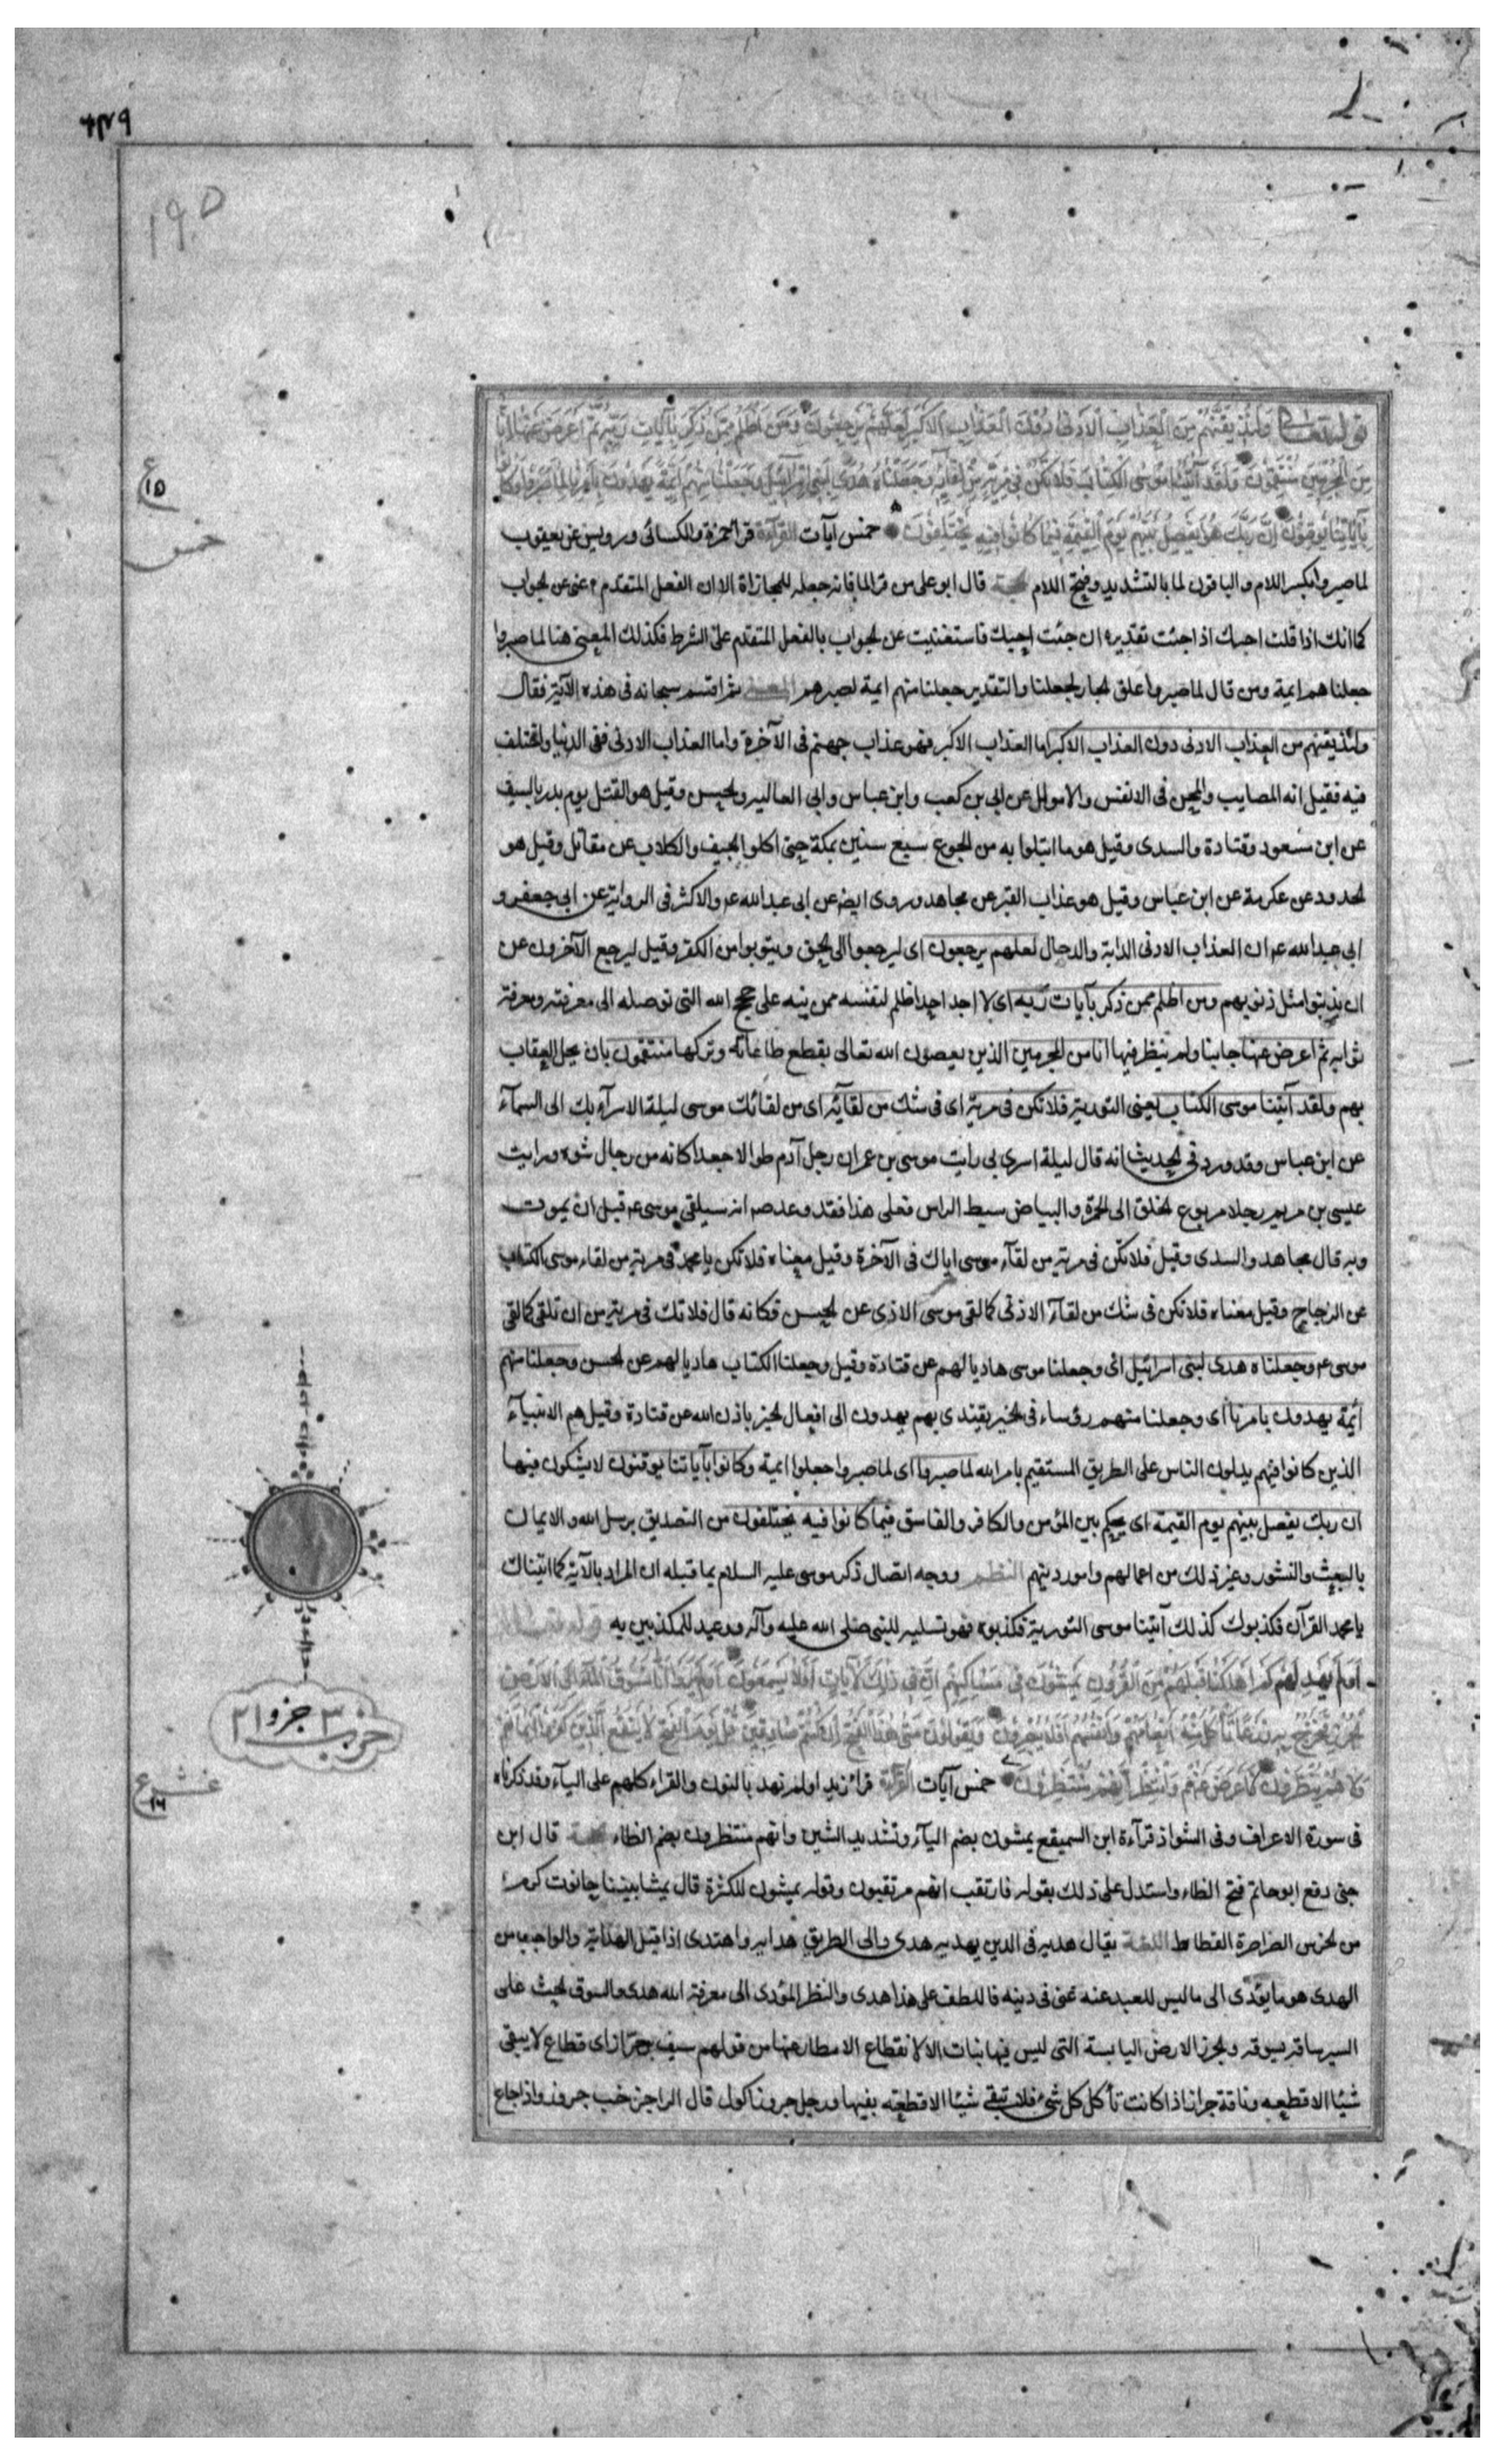 ۶۳۹
۱۹۵
قوله تعالى وَلَنُذِيقَنَّهُمْ مِنَ الْعَذَابِ الْأَدْنَى دُونَ الْعَذَابِ الْأَكْبَرِ لَعَلَّهُمْ يَرْجِعُونَ وَمَنْ أَظْلَمُ مِمَّنْ ذُكِّرَ بِآيَاتِ رَبِّهِ ثُمَّ أَعْرَضَ عَنْهَا إِنَّا
مِنَ الْمُجْرِمِينَ مُنْتَقِمُونَ وَلَقَدْ آتَيْنَا مُوسَى الْكِتَابَ فَلَا تَكُنْ فِي مِرْيَةٍ مِنْ لِقَائِهِ وَجَعَلْنَاهُ هُدًى لِبَنِي إِسْرَائِيلَ وَجَعَلْنَا مِنْهُمْ أَئِمَّةً يَهْدُونَ بِأَمْرِنَا لَمَّا صَبَرُوا وَكَانُوا
بِآيَاتِنَا يُوقِنُونَ إِنَّ رَبَّكَ هُوَ يَفْصِلُ بَيْنَهُمْ يَوْمَ الْقِيمَةِ فِيمَا كَانُوا فِيهِ يَخْتَلِفُونَ خمس آيات القرآءة قرا حمزة والكسائى ورويس عن يعقوب
لما صبروا بكسر اللام والباقون لما بالتشديد وفتح اللام الحجة قال ابو على من قرا لما فانه جعله للمجازاة الا ان الفعل المتقدم اغنى عن الجواب
كما انك اذا قلت اجيك اذا جئت تقديره ان جئت اجيك فاستغنيت عن الجواب بالفعل المتقدم على الشرط فكذلك المعنى هنا لما صبروا
جعلناهم ايمة ومن قال لما صبروا علق الجار بجعلنا والتقدير جعلنا منهم ايمة لصبرهم المعنى ثم اقسم سبحانه فى هذه الآية فقال
ولنذيقنهم من العذاب الادنى دون العذاب الاكبر اما العذاب الاكبر فهو عذاب جهنم فى الآخرة واما العذاب الادنى ففى الدنيا واختلف
فيه فقيل انه المصايب والمحن فى الانفس والاموال عن ابى بن كعب وابن عباس وابى العاليه والحسن وقيل هو القتل يوم بدر بالسيف
عن ابن مسعود وقتادة والسدى وقيل هو ما ابتلوا به من الجوع سبع سنين بمكة حتى اكلوا الجيف والكلاب عن مقاتل وقيل هو
الحدود عن عكرمة عن ابن عباس وقيل هو عذاب القبر عن مجاهد وروى ايضا عن ابى عبد الله عم والاكثر فى الرواية عن ابى جعفر و
ابى عبد الله عم ان العذاب الادنى الدابة والدجال لعلهم يرجعون اى ليرجعوا الى الحق ويتوبوا من الكفر وقيل ليرجع الآخرون عن
ان يذنبوا مثل ذنوبهم ومن اظلم ممن ذكر بآيات ربه اى لا احد احدا ظلم لنفسه ممن ينبه على حجج الله التى توصله الى معرفته ومعرفة
ثوابه ثم اعرض عنها جانبا ولم ينظر فيها انا من المجرمين الذين يعصون الله تعالى بقطع طاعاته وتركها منتقمون بان يحل العقاب
بهم ولقد آتينا موسى الكتاب يعنى التورية فلا تكن فى مرية اى فى شك من لقآئه اى من لقائك موسى ليلة الاسرآء بك الى السمآء
عن ابن عباس وقد ورد فى الحديث انه قال ليلة اسرى بى رايت موسى بن عمران رجل آدم طوالا جعدا كانه من رجال شنوءه ورايت
عيسى بن مريم رجلا مربوع الخلق الى الحمرة والبياض سبط الراس فعلى هذا فقد وعد صم انه سيلقى موسى عم قبل ان يموت
وبه قال مجاهد والسدى وقيل فلا تكن فى مرية من لقآء موسى اياك فى الآخرة وقيل معناه فلا تكن يا محمد فى مرية من لقاء موسى الكتاب
عن الزجاج وقيل معناه فلا تكن فى شك من لقآء الاذى كما لقى موسى الاذى عن الحسن فكانه قال فلا تك فى مرية من ان تلقى كما لقى
موسى عم وجعلناه هدى لبنى اسرائيل اى وجعلنا موسى هاديا لهم عن قتادة وقيل وجعلنا الكتاب هاديا لهم عن الحسن وجعلنا منهم
ائمة يهدون بامرنا اى وجعلنا منهم رؤساء فى الخير يقتدى بهم يهدون الى افعال الخير باذن الله عن قتادة وقيل هم الانبيآء
الذين كانوا فيهم يدلون الناس على الطريق المستقيم بامر الله لما صبروا اى لما صبروا جعلوا ايمة وكانوا بآياتنا يوقنون لا يشكون فيها
ان ربك يفصل بينهم يوم القيمة اى يحكم بين المؤمن والكافر والفاسق فيما كانوا فيه يختلفون من التصديق برسل الله والايمان
بالبعث والنشور وغير ذلك من اعمالهم وامور دينهم النظم ووجه اتصال ذكر موسى عليه السلام بما قبله ان المراد بالآية كما اتيناك
يا محمد القرآن فكذبوك كذلك آتينا موسى التورية فكذبوه فهو تسلية للنبى صلى الله عليه وآله ووعيد للمكذبين به قوله تعالى
أَوَلَمْ يَهْدِ لَهُمْ كَمْ أَهْلَكْنَا قَبْلَهُمْ مِنَ الْقُرُونِ يَمْشُونَ فِي مَسَاكِنِهِمْ إِنَّ فِي ذَلِكَ لَآيَاتٍ أَفَلَا يَسْمَعُونَ أَوَلَمْ يَرَوْا أَنَّا نَسُوقُ الْمَاءَ إِلَى الْأَرْضِ
الْجُرُزِ فَنُخْرِجُ بِهِ زَرْعًا تَأْكُلُ مِنْهُ أَنْعَامُهُمْ وَأَنْفُسُهُمْ أَفَلَا يُبْصِرُونَ وَيَقُولُونَ مَتَى هَذَا الْفَتْحُ إِنْ كُنْتُمْ صَادِقِينَ قُلْ يَوْمَ الْفَتْحِ لَا يَنْفَعُ الَّذِينَ كَفَرُوا إِيمَانُهُمْ
وَلَا هُمْ يُنْظَرُونَ فَأَعْرِضْ عَنْهُمْ وَانْتَظِرْ إِنَّهُمْ مُنْتَظِرُونَ خمس آيات القرآءة قرا زيد اولم نهد بالنون والقراء كلهم على اليآء وقد ذكرناه
فى سورة الاعراف وفى الشواذ قرآءة ابن السميقع يمشون بضم اليآء وتشديد الشين وانهم منتظرون بفتح الظاء الحجة قال ابن
جنى دفع ابو حاتم فتح الظاء واستدل على ذلك بقوله فارتقب انهم مرتقبون وقوله يمشون للكثرة قال يمشا بيننا حانوت كرم
من الخرس الصراصرة القطاط اللغة يقال هديه فى الدين يهديه هدى والى الطريق هدايه واهتدى اذا قبل الهداية والواجب من
الهدى هو ما يؤدى الى ما ليس للعبد عنه غنى فى دينه فاللطف على هذا هدى والنظر المؤدى الى معرفة الله هدى والسوق الحث على
السير ساقه يسوقه والجرز الارض اليابسة التى ليس فيها نبات الا لانقطاع الامطار عنها من قولهم سيف جراز اى قطاع لا يبقى
شيئا الا قطعه وناقة جراز اذا كانت تأكل كل شئ فلا تبقى شيئا الا قطعته بفيها ورجل جروز اكول قال الراجز خب جروز واذا جاع
ع
۱۵
خمس
حزب ۳ جزو ۲۱
عشر ع
۱۶